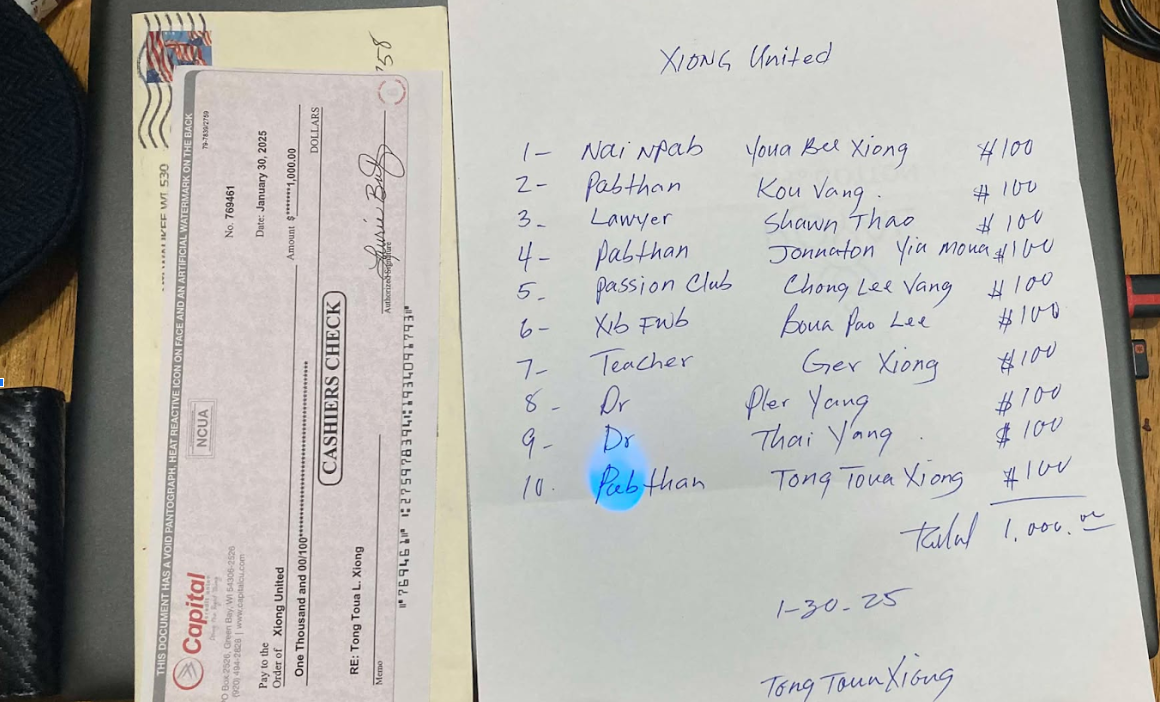 THIS DOCUMENT HAS A VOID PANTOGRAPH, HEAT REACTIVE ICON ON FACE AND AN ARTIFICIAL WATERMARK ON THE BACK
Capital
PO Box 2526, Green Bay, WI 54306-2526
(920) 494-2828 | www.capitalcu.com
NCUA
79-7839/2759
No. 769461
Date: January 30, 2025
Pay to the
Order of Xiong United
Amount $*******1,000.00
One Thousand and 00/100
DOLLARS
CASHIERS CHECK
RE: Tong Toua L. Xiong
Memo
Authorized Signature
WI 530
58
XIONG United
1- Nai Npab Youa Bee Xiong $100
2- Pabthan Kou Vang. $100
3- Lawyer Shawn Thao $100
4- Pabthan Jonnaton Yia Moua $100
5- passion Club Chong Lee Vang $100
6- Xib Fwb Boua Pao Lee $100
7- Teacher Ger Xiong $100
8- Dr Pler Yang $100
9- Dr Thai Yang $100
10. Pabthan Tong Toua Xiong $100
Total 1,000.00
1-30-25
Tong Toua Xiong